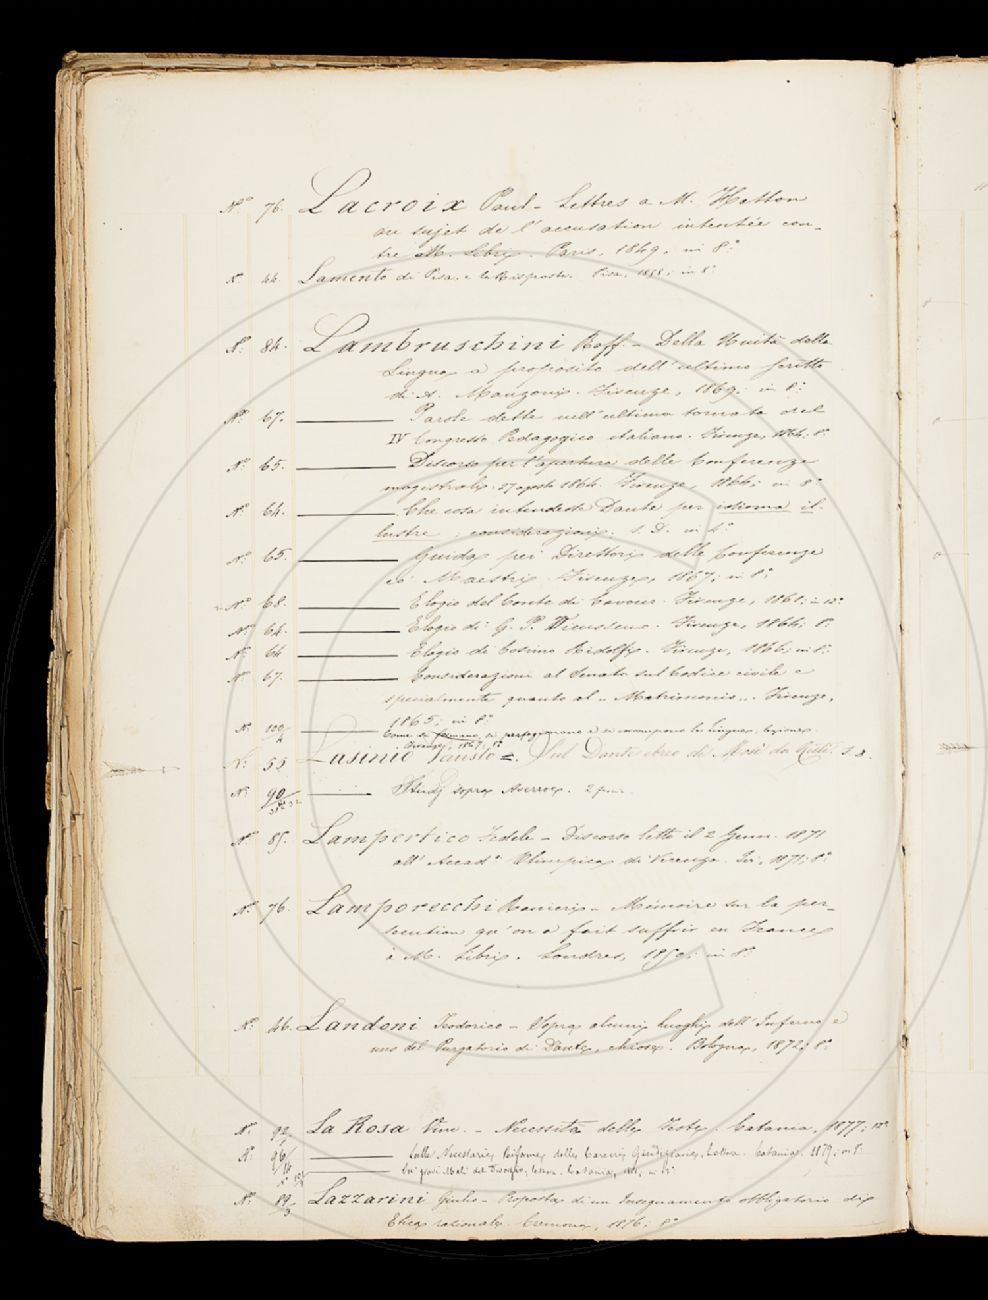 N.° 76. Lacroix Paul - Lettres a M. Hatton
au sujet de l'accusation intentée con-
tre M. Libri. Paris, 1849, in 8.°
N. 44. Lamento di Pisa, e la Risposta. Pisa, 1858; in 8.°
N.° 84. Lambruschini Raff. - Della Unità della
Lingua a proposito dell'ultimo scritto
di A. Manzoni. Firenze, 1869; in 8.°
N.° 67. Parole dette nell'ultima tornata del
IV Congresso Pedagogico italiano. Firenze, 1864; 8.°
N.° 65. Discorso per l'apertura delle Conferenze
magistrali. 27 agosto 1864. Firenze, 1864; in 8.°
N.° 64. Che cosa intendesse Dante per idioma il-
lustre; considerazioni; s. D. in 4.°
N.° 65. Guida pei Direttori delle Conferenze
ai Maestri. Firenze, 1867; in 8.°
N.° 68. Elogio del Conte di Cavour. Firenze, 1861; in 12.°
N.° 64. Elogio di G. P. Vieusseux. Firenze, 1864; 8.°
N.° 64 Elogio di Cosimo Ridolfi. Firenze, 1866; in 8.°
N. 67. Considerazioni al Senato sul Codice civile e
specialmente quanto al "Matrimonio". Firenze,
1865; in 8.°
N.° 100/4 Come si formano, si perfezionano e si corrompono le lingue, lezione.
Firenze, 8.°
N. 55 Lasinio Fausto =. Sul Dante ebreo di Mosè da Rieti. s. d.
N. 90 Studj sopra Averroes. 2
N.° 85. Lampertico Fedele - Discorso letto il 2 Genn. 1871
all'Accad.ª Olimpica di Vicenza. Ivi, 1871; 8.°
N.° 76. Lamporecchi Ranieri - Mémoire sur la per-
secution qu'on a fait suffrir en France
à M. Libri. Londres, 1850; in 8.°
N.° 46. Landoni Teodorico - Sopra alcuni luoghi dell'Inferno e
uno del Purgatorio di Dante, chiose. Bologna, 1872; 8.°
N. 92 La Rosa Vinc. - Necessità delle Teste. Catania, 1877; 12.°
N.° 96/14 Sulle Necessarie Riforme delle Carceri Giudiziarie, Lettera. Catania, 1879; in 8.°
Dei gravi Mali del lettera. Catania,
N.° 89/3 Lazzarini Giulio - Proposta di un Insegnamento obbligatorio di
Etica razionale. Cremona, 1876; 8.°